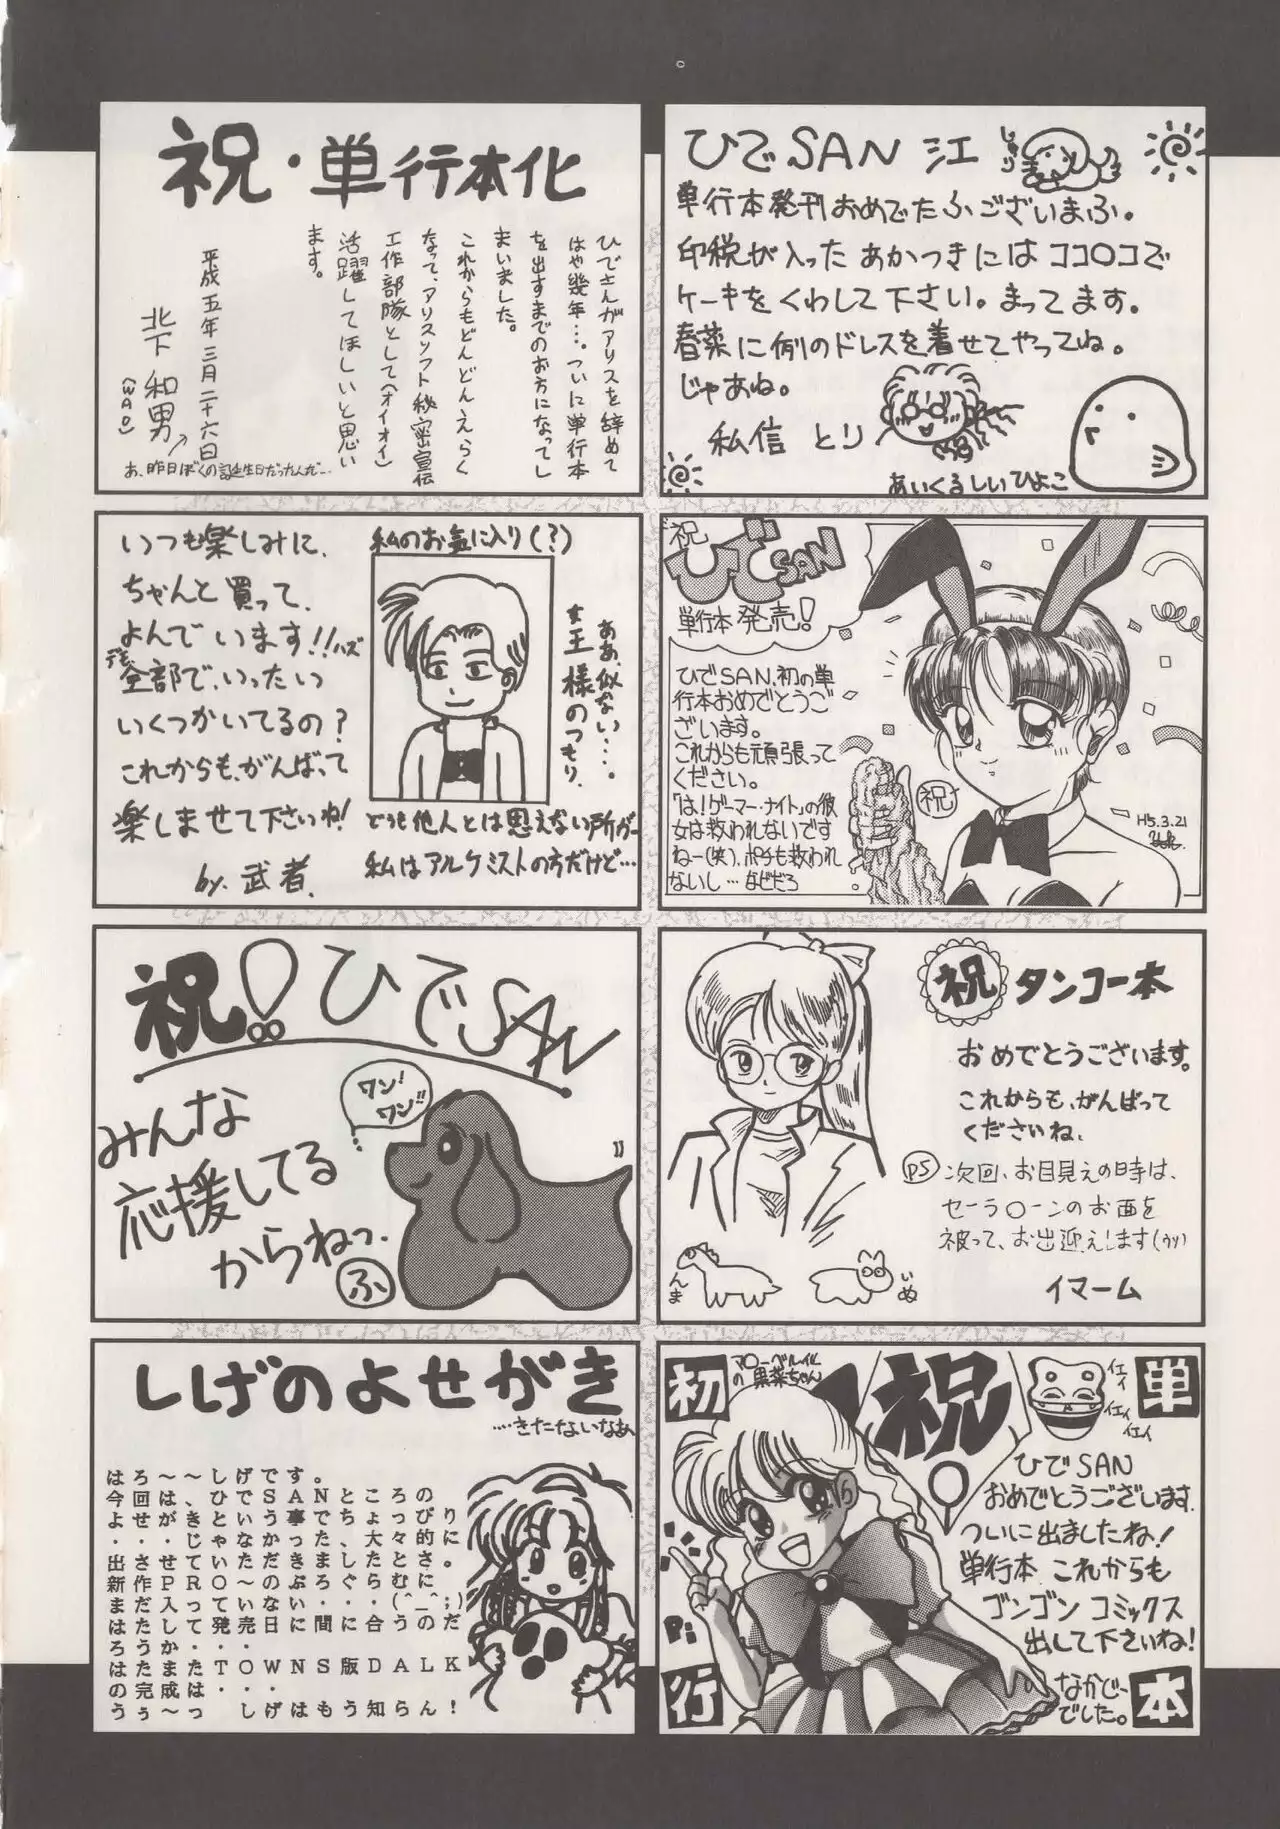 祝・単行本化
ひでさんがアリスを辞めて
はや幾年…。ついに単行本
を出すまでのお方になってし
まいました。
これからもどんどんえらく
なって、アリスソフト秘密宣伝
工作部隊として(オイオイ)
活躍してほしいと思い
ます。
平成五年三月二十六日
北下 和男
(WAO)
あ、昨日ぼくの誕生日だったんだ…
ひでSAN 江
単行本発刊おめでたふございまふ。
印税が入ったあかつきにはココ〇コで
ケーキをくわして下さい。まってます。
春菜に例のドレスを着せてやってね。
じゃあね。
私信 とり
あいくるしいひよこ
いつも楽しみに、
ちゃんと買って、
よんでいます!!ハズ
デモ全部で、いったい
いくつかいてるの?
これからも、がんばって
楽しませて下さいね!
by. 武者.
私のお気に入り(?)
ああ、似ない…。
女王様のつもり.
どうも他人とは思えない所が…
私はアルケミストの方だけど…
祝
ひでSAN
単行本発売!
ひでSAN、初の単
行本おめでとうご
ざいます。
これからも頑張って
ください。
「は!ゲーマー・ナイト」の彼
女は救われないです
ねー(笑)、ポチも救われ
ないし…などだろ
祝
H5.3.21
祝!ひでSAN
ワン!
ワン!!
みんな
応援してる
からねっ.
ふ
祝 タンコー本
おめでとうございます。
これからも、がんばって
くださいね.
PS 次回、お目見えの時は、
セーラ〇ーンのお面を
被って、お出迎えします(ウソ)
んま
いぬ
イマーム
しげのよせがき
····きたないなぁ
はろ~~しげです。
今回は、ひでSANところの
よせがきじゃないうか事でちょっぴり
・・・
新作PROTO
はろうか・・・
はたまたTOWNS版DALK
のう完成は・・
うぅ~っ しげはもう知らん!
初
単
行
本
祝
マ〇ーベルイルの黒菜ちゃん
イェイ
イェイ
イェイ
ひでSAN
おめでとうございます.
ついに出ましたね!
単行本 これからも
ゴンゴン コミックス
出して下さいね!
なかじー
でした。
Pi